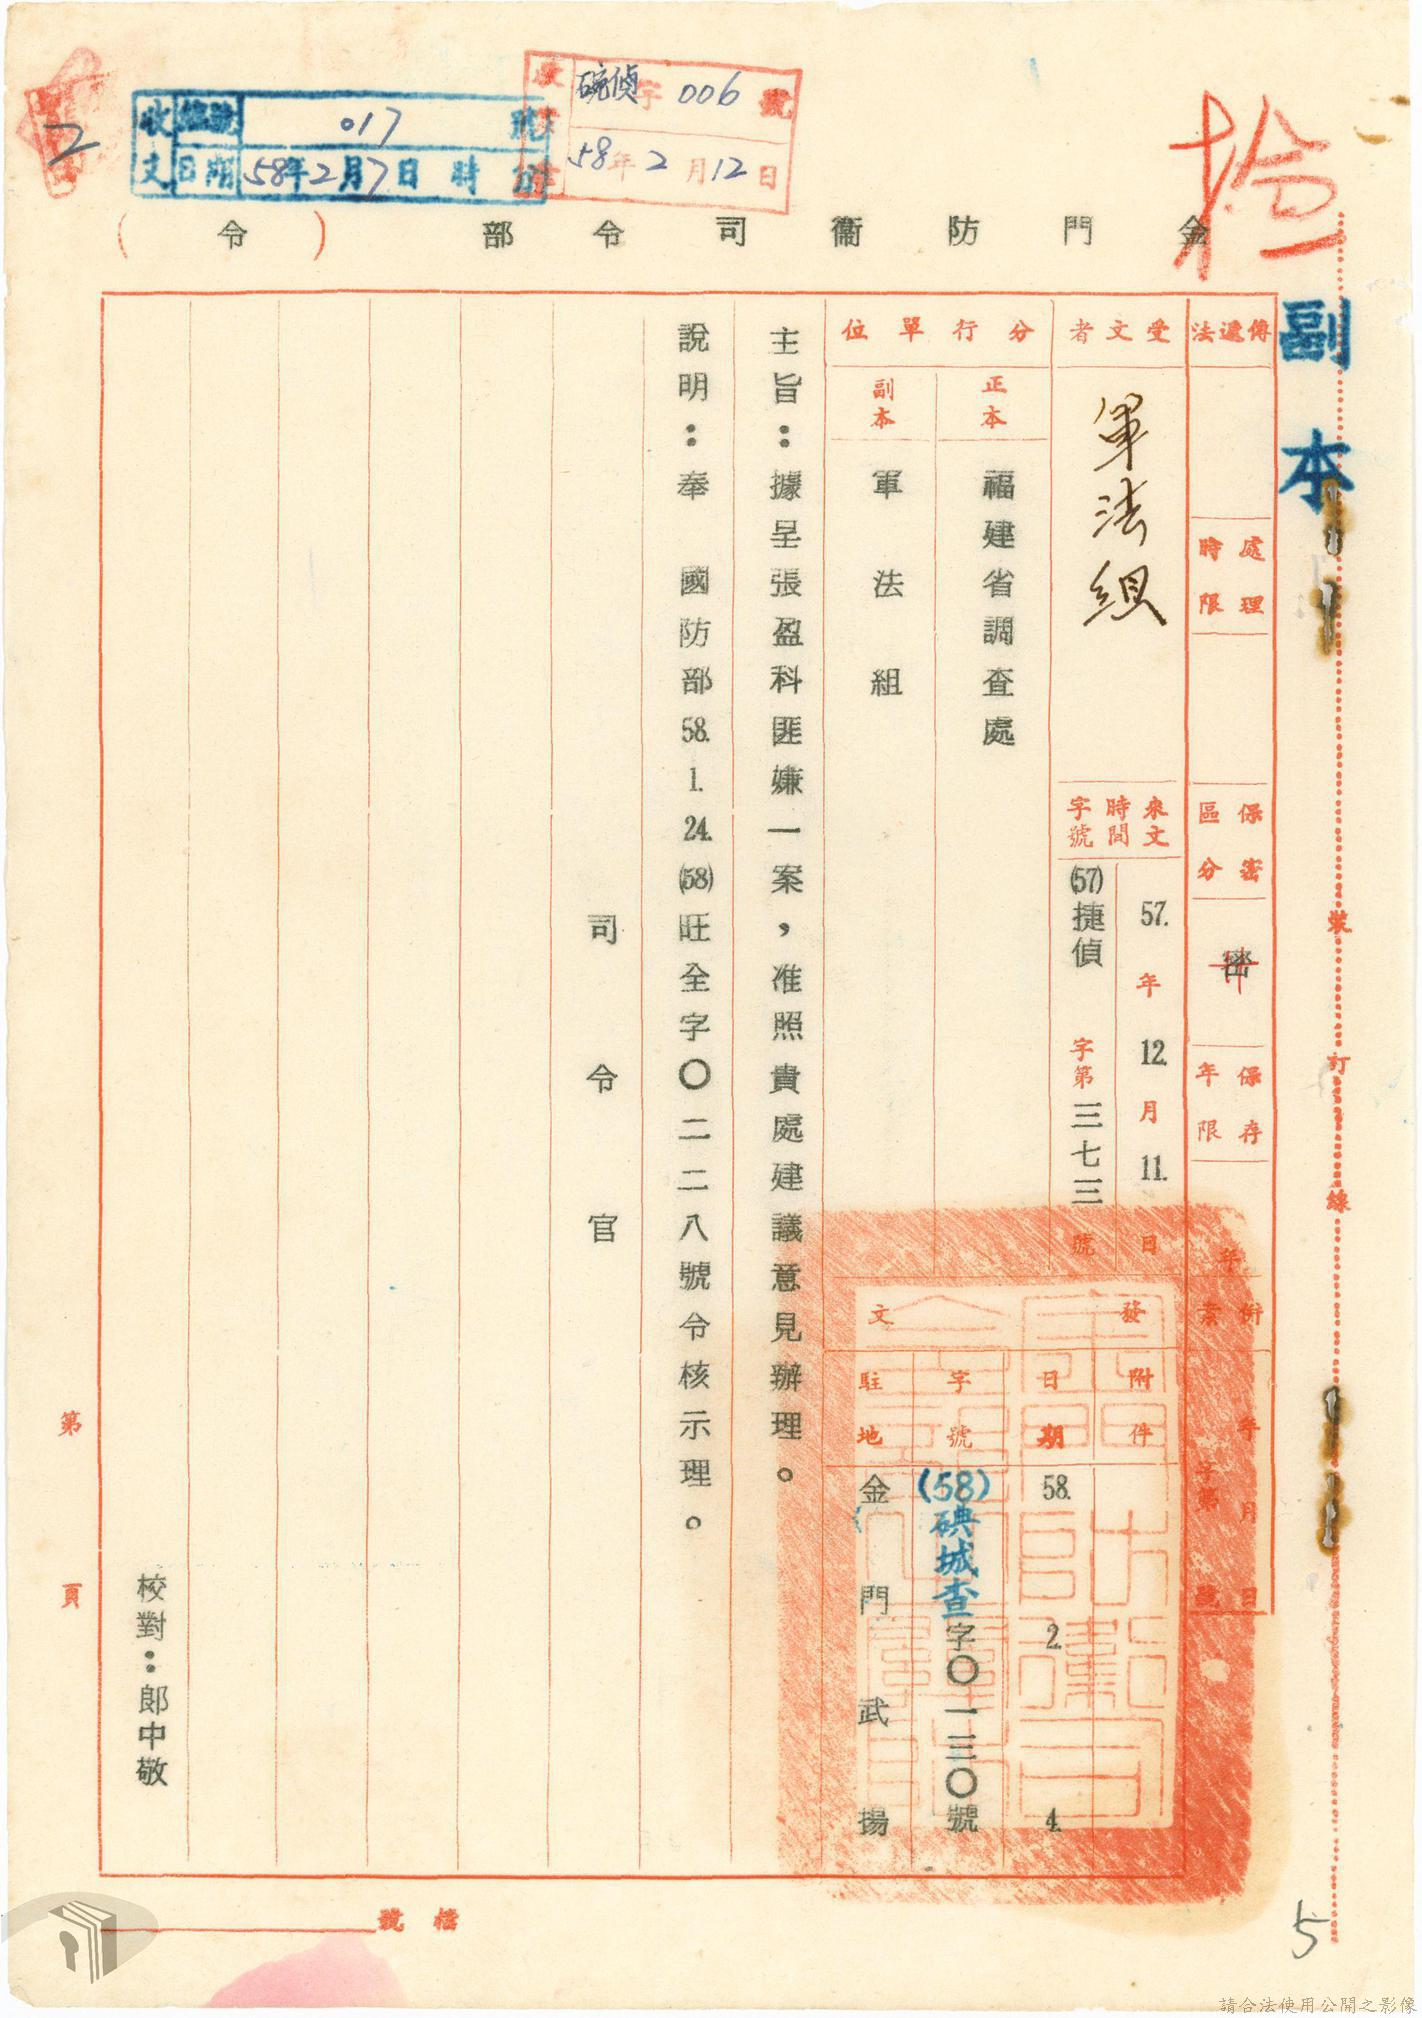 收文
編號 017 號
日期 58年2月7日 時
碗偵字006號
58年2月12日
2
金門防衛司令部（令）
副本
裝訂線
傳遞法
處理時限
保密區分
密
保存年限
年 月 日
字第 號
受文者
軍法組
來文時間字號
57.年12.月11.日
(57)捷偵 字第三七三號
分行單位
正本
福建省調查處
副本
軍法組
發文
附件
日期
58. 2. 4.
字號
(58)碘城查字〇一三〇號
駐地
金門武揚
主旨：據呈張盈科匪嫌一案，准照貴處建議意見辦理。
說明：奉 國防部58.1.24.(58)旺全字〇二二八號令核示理。
司令官
校對：郎中敬
第 頁
檔號
5
請合法使用公開之影像